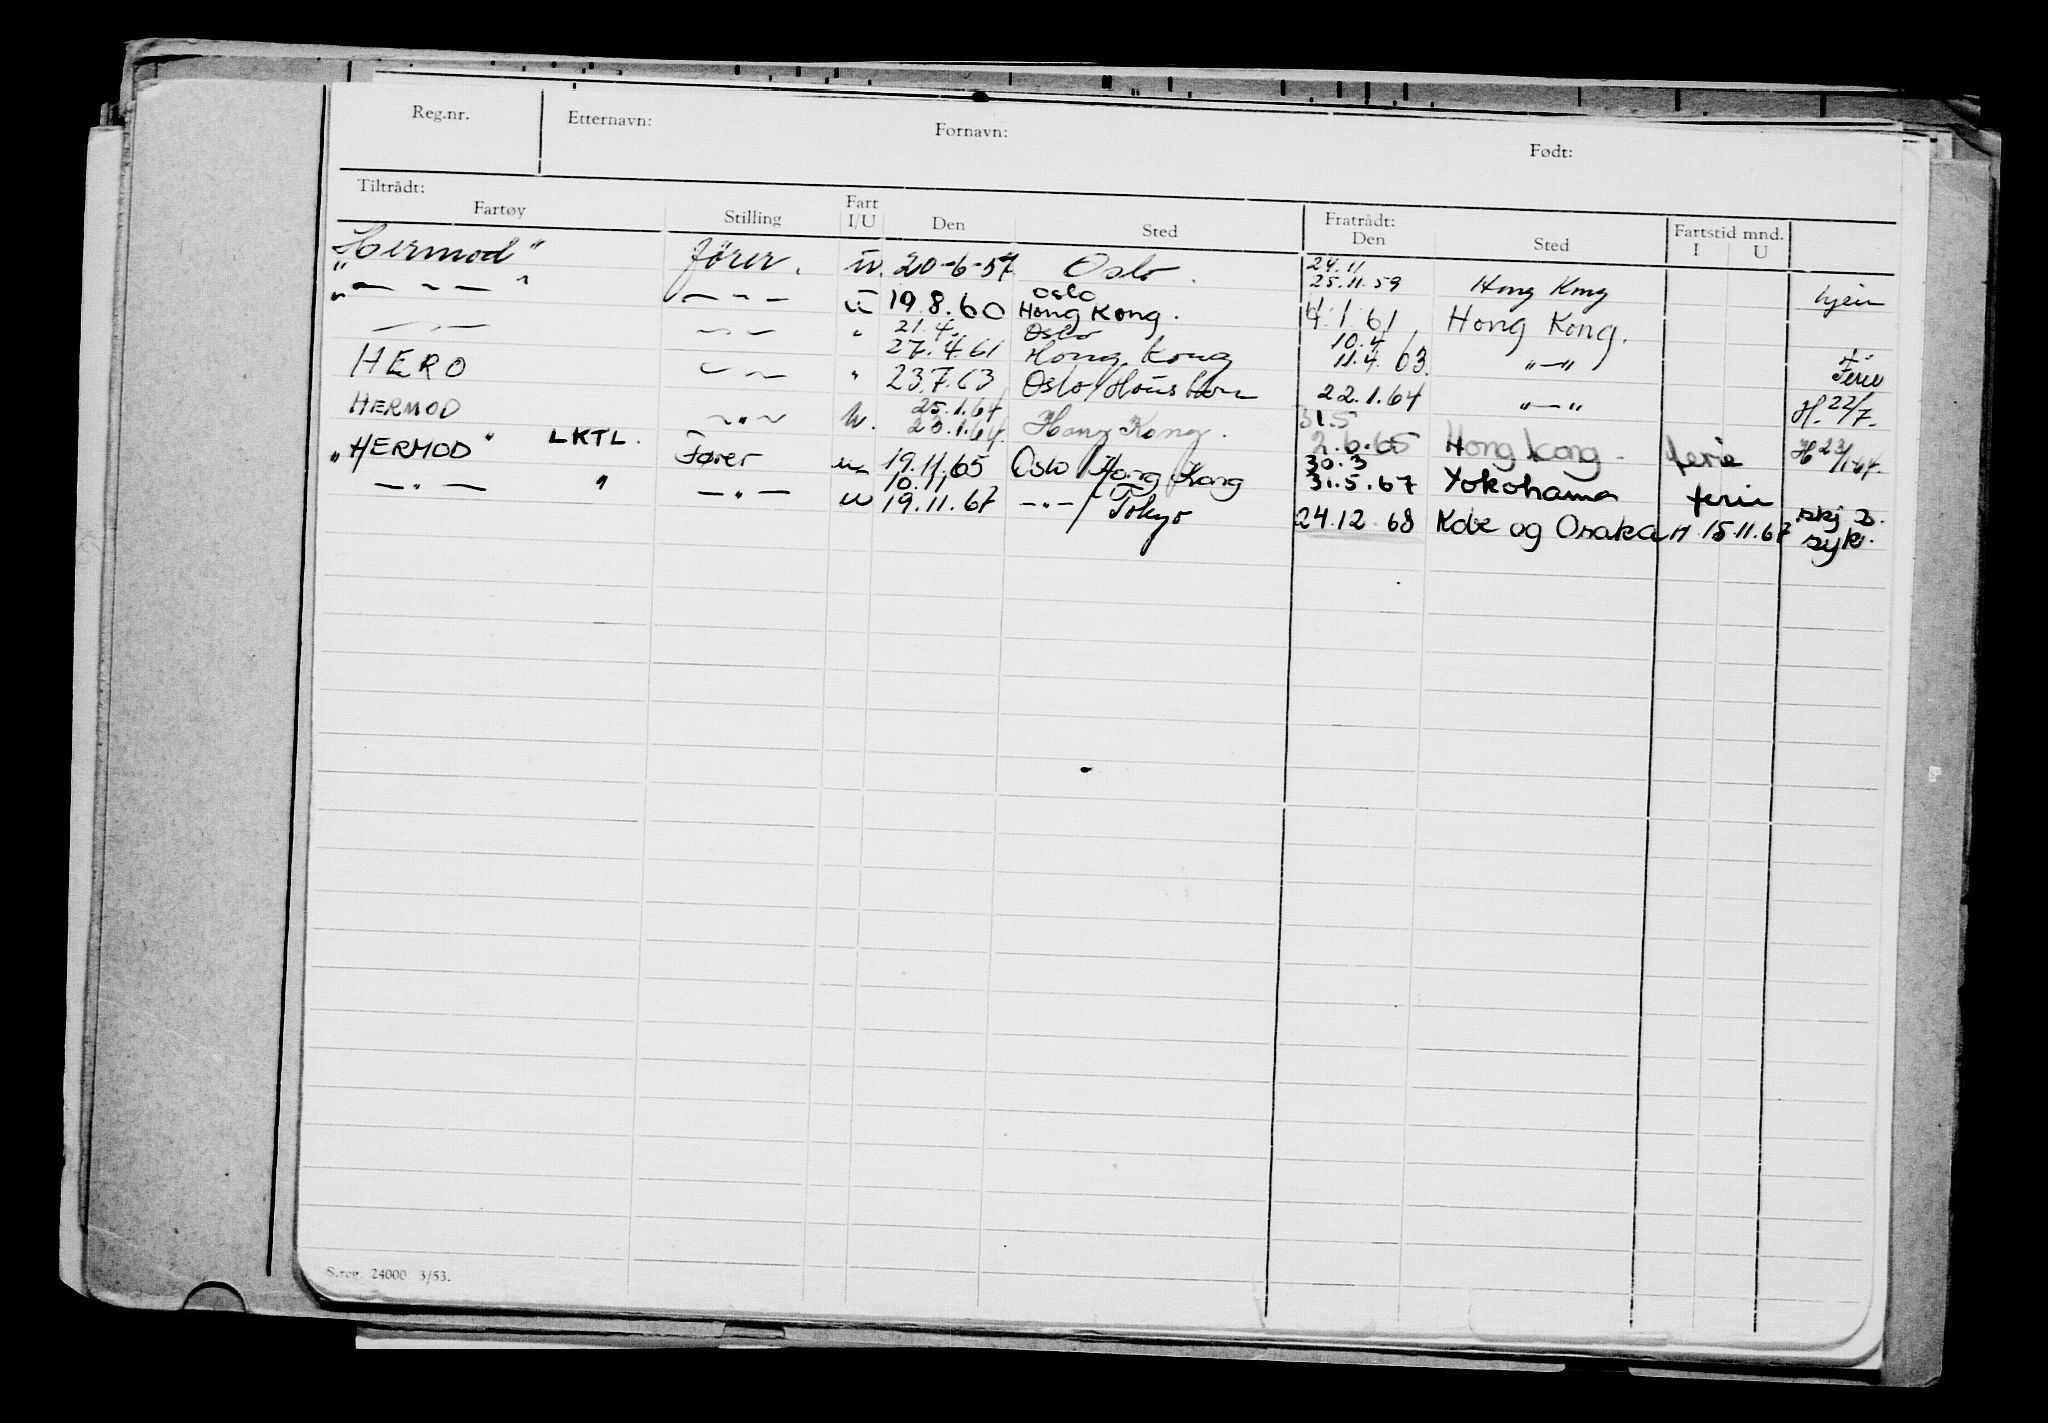 Reg.nr. Etternavn: Fornavn: Født:
Tiltrådt: Fratrådt:
Fartøy Stilling Fart I/U Den Sted Den Sted Fartstid mnd. I U
"Hermod" fører. u. 20-6-57 Oslo. 24.11 25.11.59 Hong Kong hjem
" — " — " — " — u 19.8.60 Oslo Hong Kong. 4.1.61 Hong Kong.
— " — — " — " 21.4. 27.4.61 Oslo Hong Kong 10.4 11.4.63. — " — Ferie
HERO — " — " 23.7.63 Oslo/Houston 22.1.64 — " — H. 22/7.
HERMOD — " — u. 25.1.64 23.1.64. Hong Kong. 31.5 2.6.65 Hong Kong. ferie H 23/1-64.
"HERMOD" LKTL. Fører u 19.11.65 Oslo/Hong Kong 30.3 31.5.67 Yokohama ferie
— " — " — " — u 10.11 19.11.67 — " —/Tokyo 24.12.68 Kobe og Osaka H 15.11.67 skj B. syk.
S.reg. 24000 3/53.